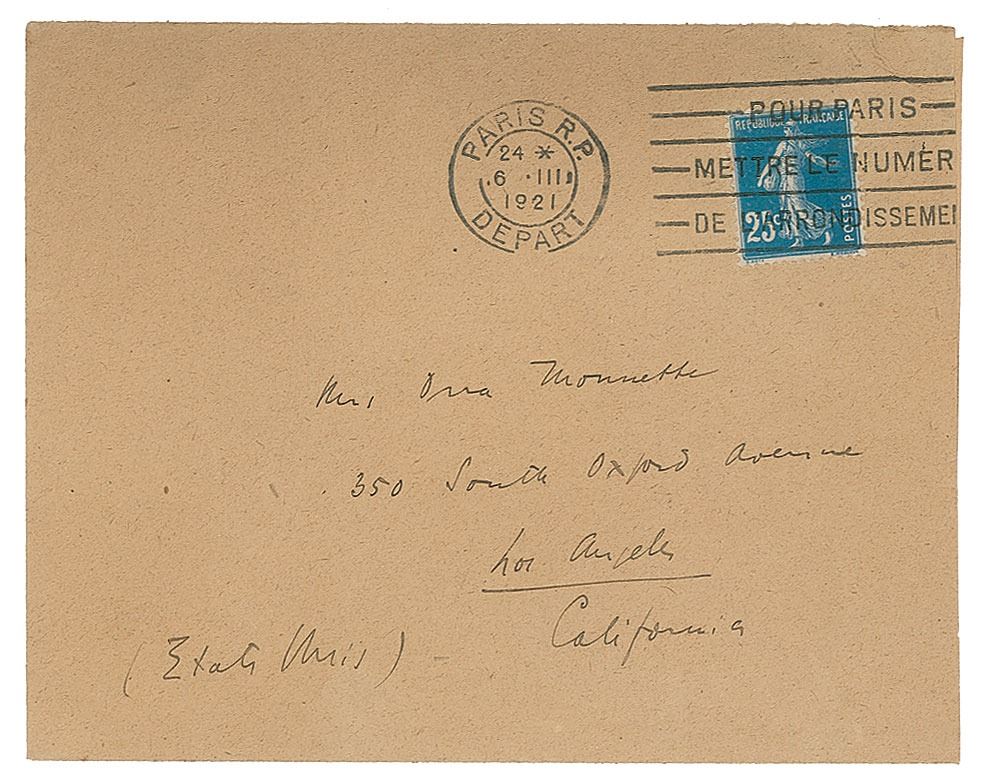 PARIS R.P.
24 *
6 · III
1921
DEPART
POUR PARIS
METTRE LE NUMÉR
DE L'ARRONDISSEMEN
REPUBLIQUE FRANÇAISE
25c
POSTES
Mrs Orra Monnette
350 South Oxford Avenue
Los Angeles
California
(Etats Unis)